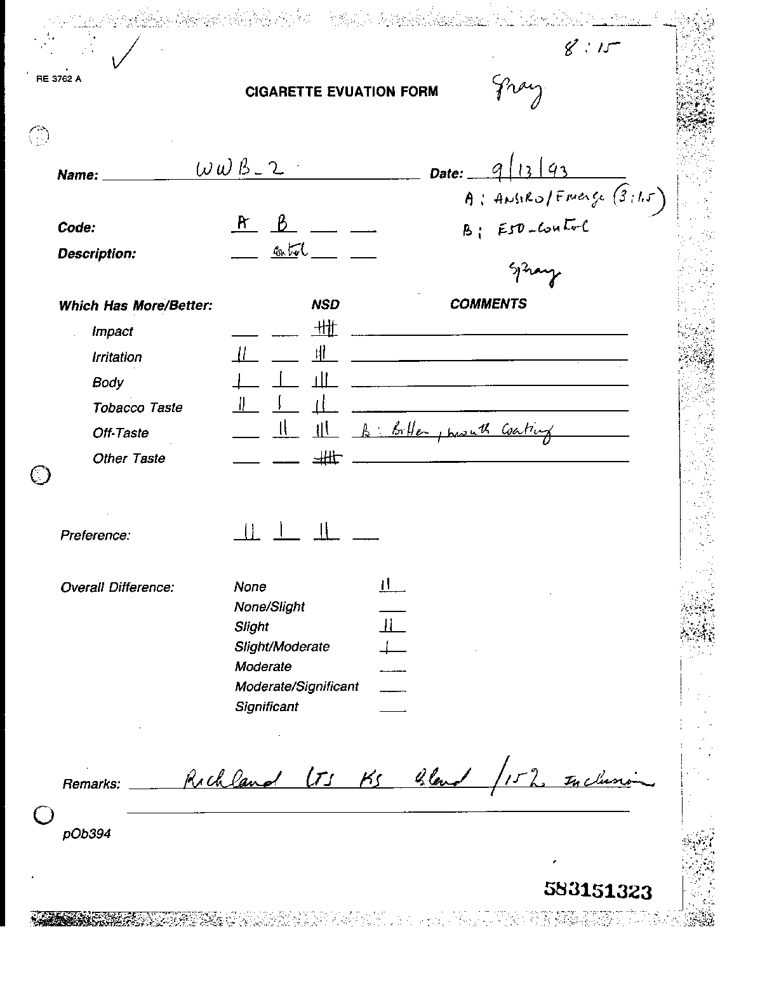 8:15
RE 3762 A
CIGARETTE EVUATION FORM
Spray
Name: WWB-2 Date: 9/13/93
A: /Emerge (3:1.5)
Code: A B
B: ESD-Control
Description: Control
Spray
Which Has More/Better: NSD COMMENTS
Impact
Irritation
Body
Tobacco Taste
Off-Taste B: Bitter, mouth Coating
Other Taste
Preference:
Overall Difference: None
None/Slight
Slight
Slight/Moderate
Moderate
Moderate/Significant
Significant
Remarks: Richland LTS KS Blend /15% Inclusion
pOb394
583151323